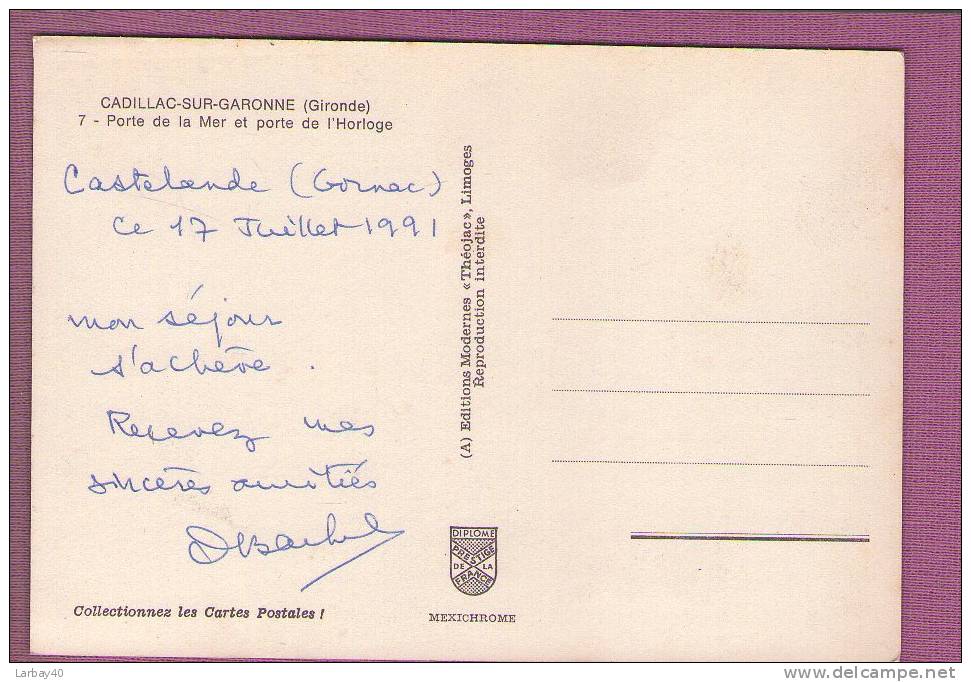 CADILLAC-SUR-GARONNE (Gironde)
7 - Porte de la Mer et porte de l'Horloge
Castelande (Gornac)
Ce 17 Juillet 1991
mon séjour
s'achève.
Recevez mes
sincères amitiés
Collectionnez les Cartes Postales !
(A) Editions Modernes «Théojac», Limoges
Reproduction interdite
DIPLOME
PRESTIGE
DE LA
FRANCE
MEXICHROME
Larbay40
delcampe.net